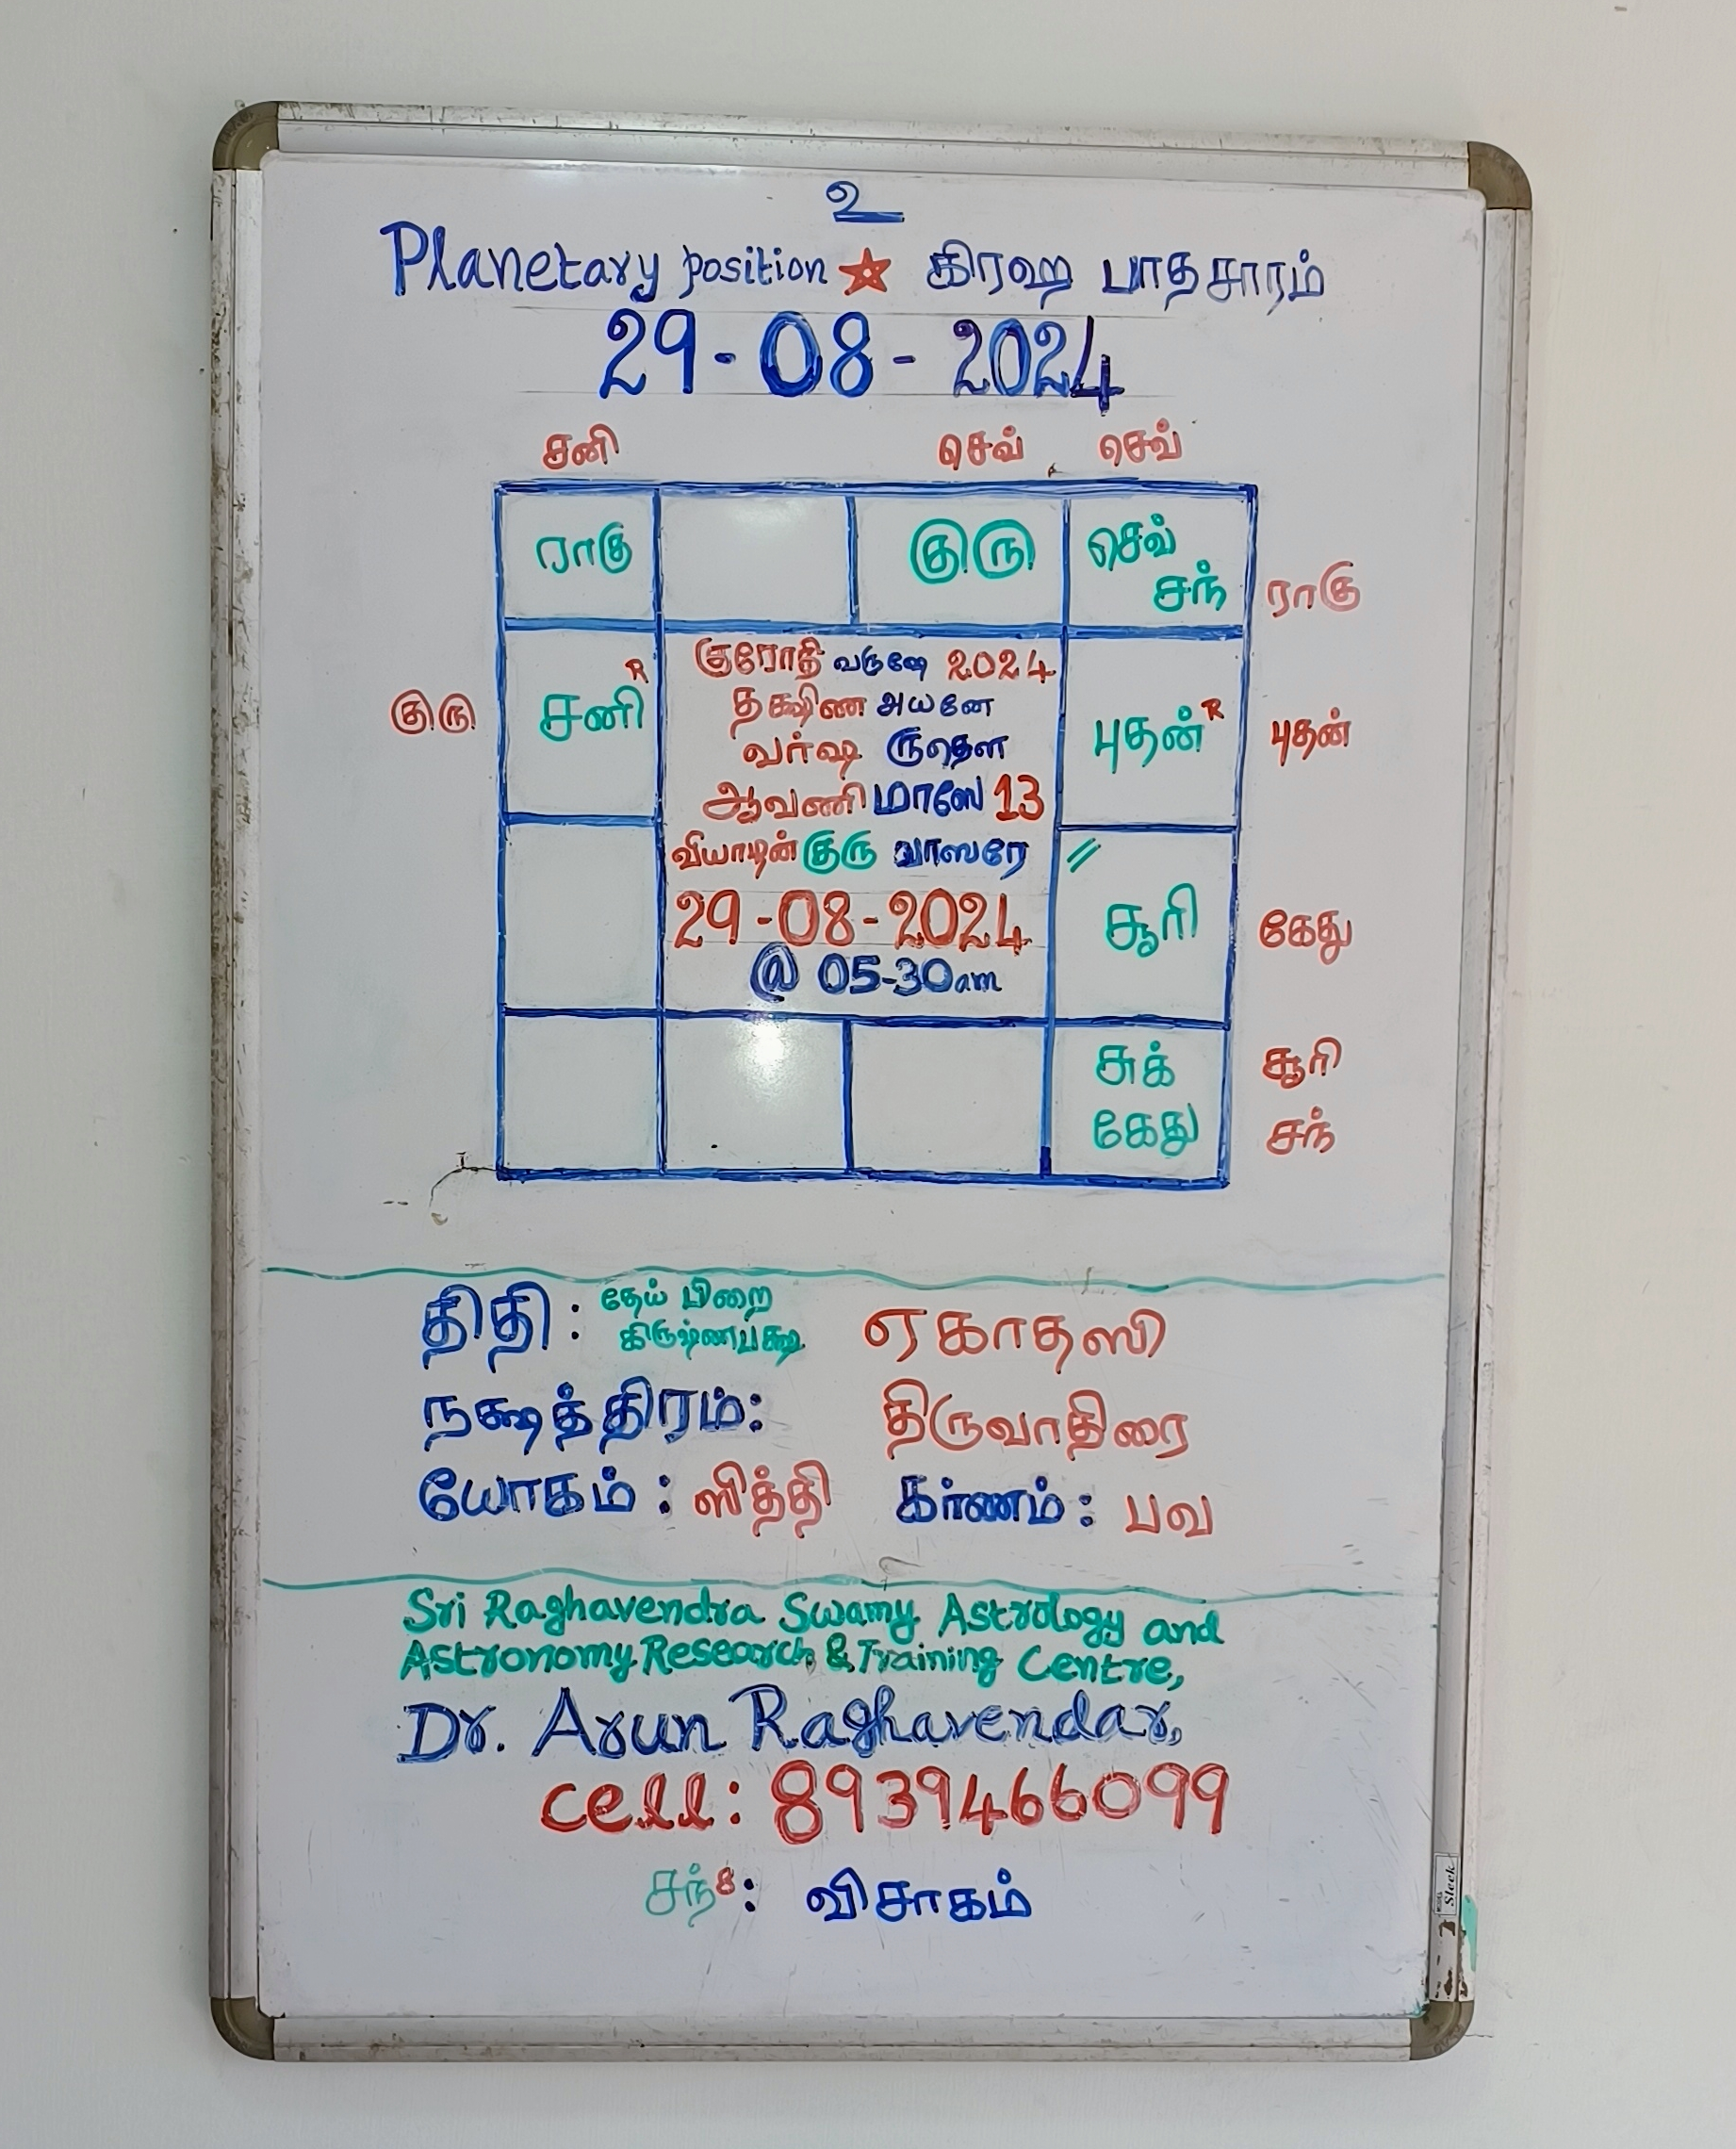 உ
Planetary position ★ கிரஹ பாதசாரம்
29-08-2024
சனி செவ் செவ்
ராகு குரு செவ்
சந் ராகு
குரு சனி R புதன் R புதன்
குரோதி வருஷே 2024
தக்ஷிண அயனே
வர்ஷ ருதௌ
ஆவணி மாஸே 13
வியாழன் குரு வாஸரே
29-08-2024
@ 05-30am
சூரி கேது
சுக் சூரி
கேது சந்
திதி : தேய் பிறை
கிருஷ்ணபக்ஷ ஏகாதஸி
நக்ஷத்திரம்: திருவாதிரை
யோகம் : ஸித்தி கர்ணம் : பவ
Sri Raghavendra Swamy Astrology and
Astronomy Research & Training Centre,
Dr. Arun Raghavendar,
cell: 8939466099
சந் 8 : விசாகம்
Sleek